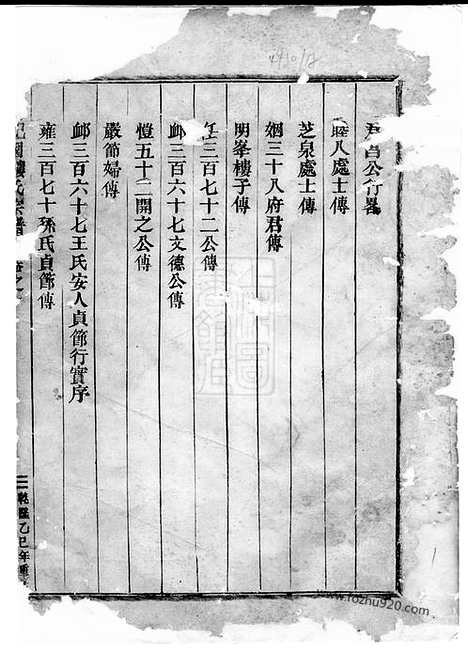 昌公行畧
睦八處士傳
芝泉處士傳
姻三十八府君傳
明峯樓子傳
任三百七十二公傳
邺三百六十七文德公傳
愷五十二開之公傳
嚴節婦傳
邺三百六十七王氏安人貞節行實序
雍三百七十孫氏貞節傳
樓氏宗譜
乾隆乙巳年重
www.fozhu920.com